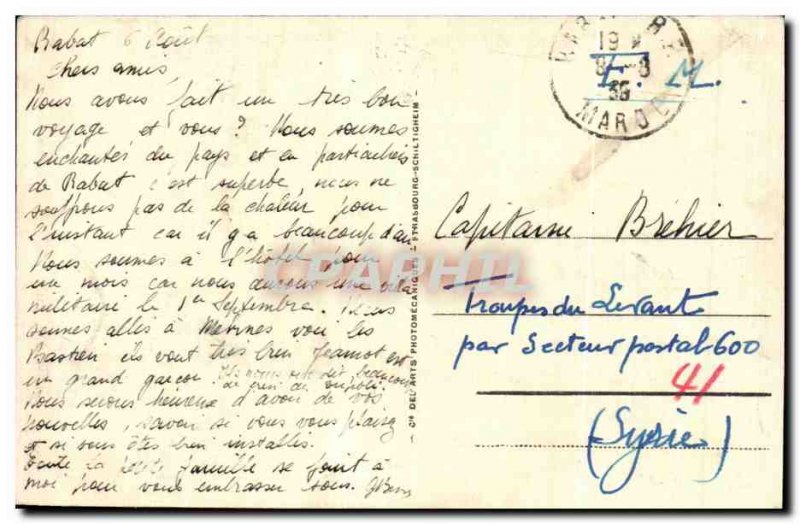 Rabat 6 Août
Chers amis,
Nous avons fait un très bon
voyage et vous? Nous sommes
enchantés du pays et en particulier
de Rabat c'est superbe, nous ne
souffrons pas de la chaleur pour
l'instant car il y a beaucoup d'air
Nous sommes à l'hôtel pour
un mois car nous aurons une villa
militaire le 1er Septembre. Nous
sommes allés à Meknes voir les
Bastien ils vont très bien Jeannot est
un grand garçon Ils nous ont dit beaucoup
de bien de
Nous serons heureux d'avoir de vos
nouvelles, savoir si vous vous plaisez
et si vous êtes bien installés.
Toute la petite famille se joint à
moi pour vous embrasser tous.
Cie DES ARTS PHOTOMÉCANIQUES - STRASBOURG-SCHILTIGHEIM
RABAT R.P.
19
8-8
36
MAROC
F. M.
Capitaine Bréhier
Troupes du Levant
par Secteur postal 600
41
(Syrie)
CPAPHIL